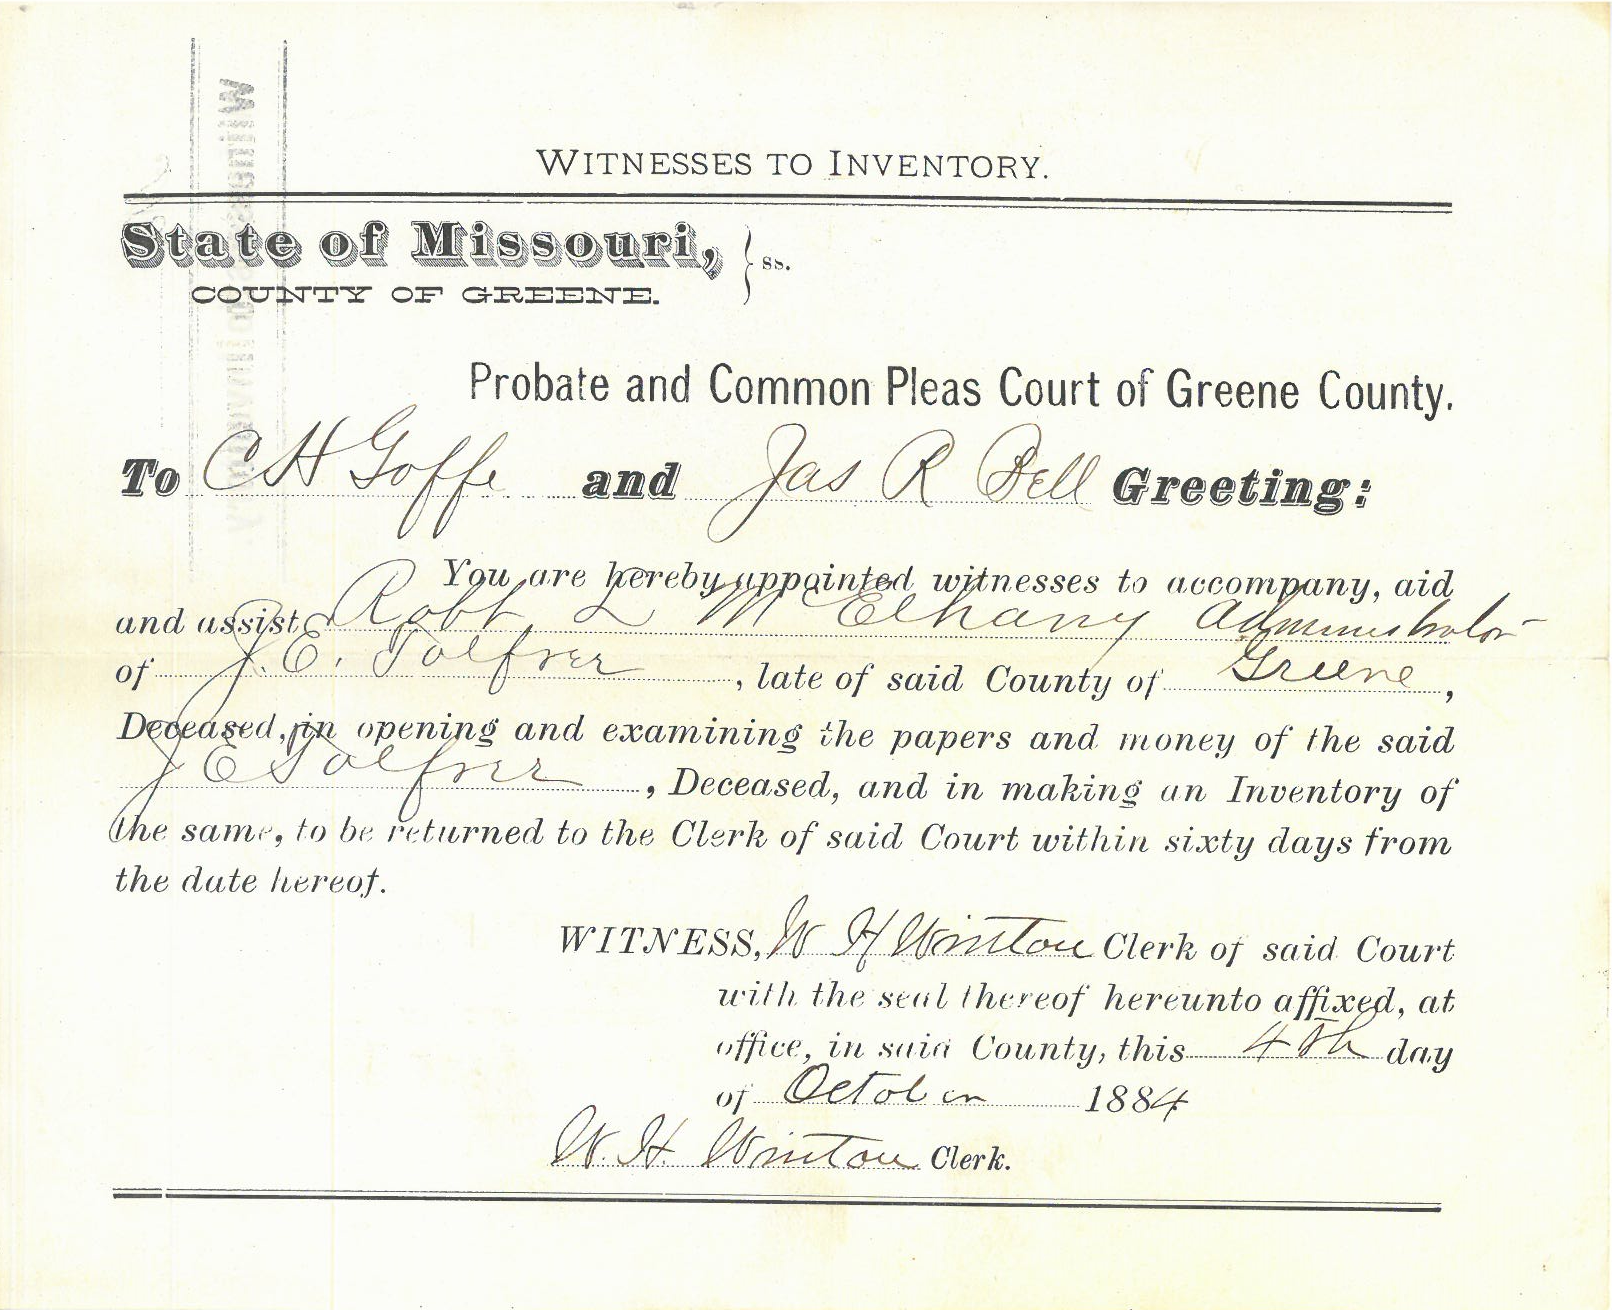 WITNESSES TO INVENTORY.
State of Missouri, } ss.
COUNTY OF GREENE.
Probate and Common Pleas Court of Greene County.
To C H Goffe and Jas R Bell Greeting:
You are hereby appointed witnesses to accompany, aid
and assist Robt L McElhany Administrator
of J. E. , late of said County of Greene,
Deceased, in opening and examining the papers and money of the said
J E , Deceased, and in making an Inventory of
the same, to be returned to the Clerk of said Court within sixty days from
the date hereof.
WITNESS, W H Winton Clerk of said Court
with the seal thereof hereunto affixed, at
office, in said County, this 4th day
of October 1884
W. H. Winton Clerk.